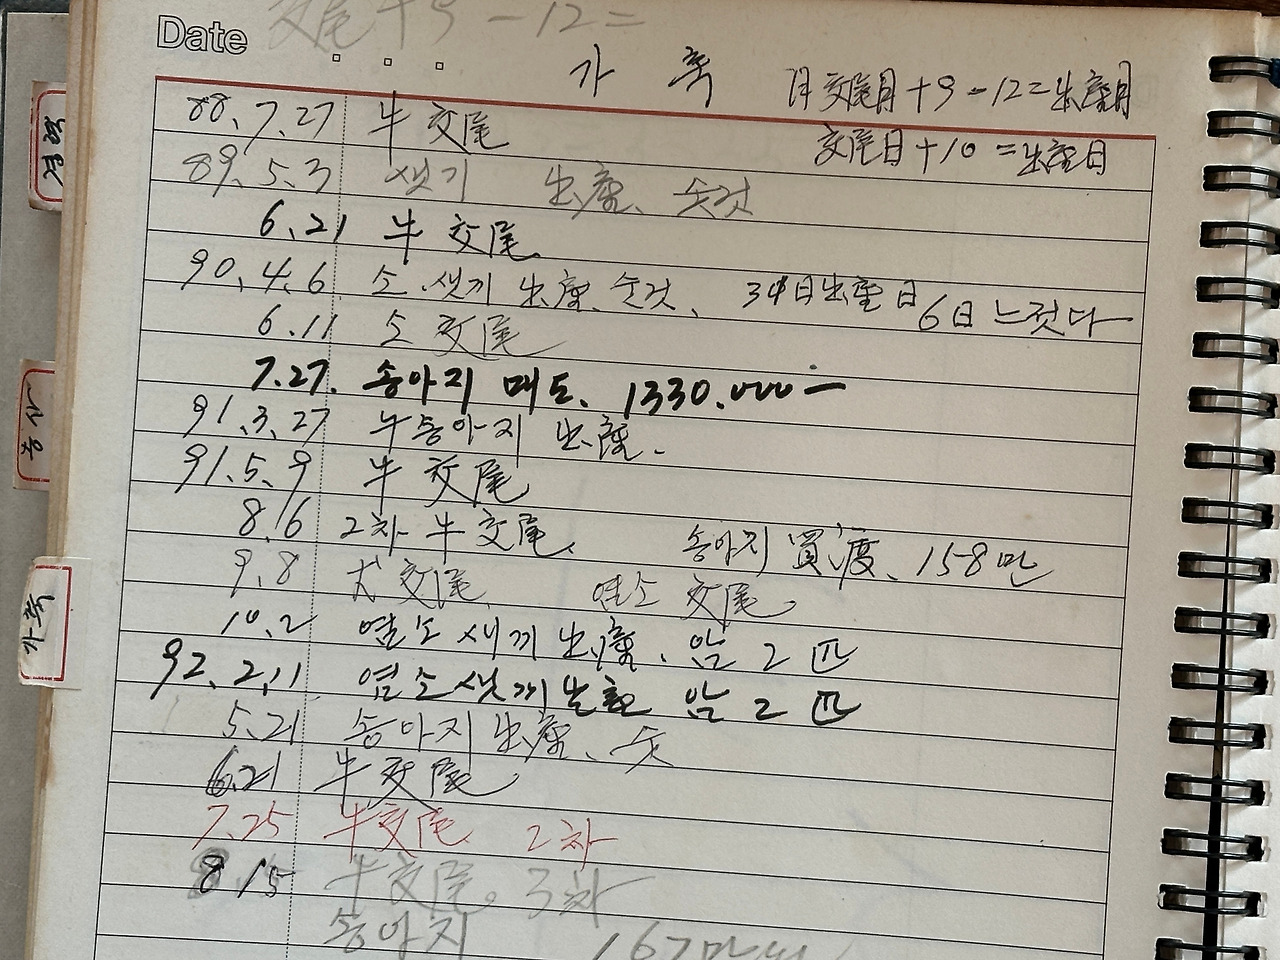 交尾 + 9 - 12 =
Date
가축
月 交尾月 + 9 - 12 = 出産月
交尾日 + 10 = 出産日
88.7.27 牛 交尾
89.5.3 새끼 出産. 숫것
6.21 牛 交尾
90.4.6 소.새끼 出産. 숫것. 出産日 6日 느젓다
6.11 소 交尾
7.27. 송아지 매도. 1330.000ー
91.3.27 牛송아지 出産.
91.5.9 牛 交尾
8.6 2차 牛 交尾 송아지 買渡. 158만
9.8 犬 交尾 염소 交尾.
10.2 염소 새끼 出産. 암 2 匹
92.2.11. 염소 샛끼 出産 암 2 匹
5.21 송아지 出産. 숫
6.21 牛 交尾
7.25 牛交尾 2차
8 15 牛交尾. 3차
송아지 167만
축산
가축